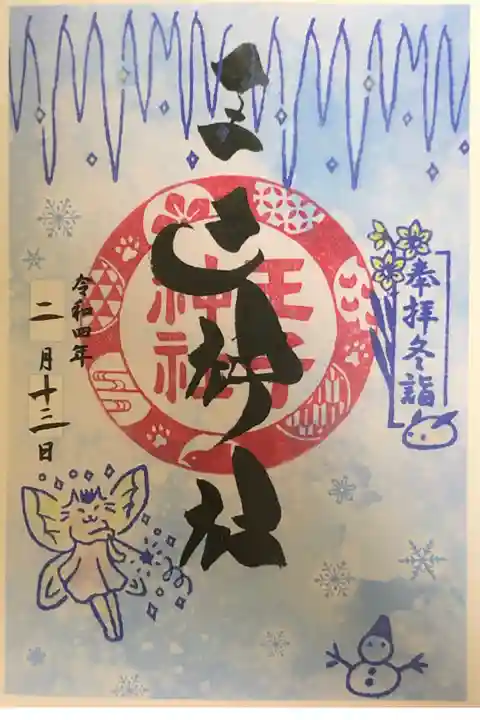 奉拝冬詣
王子神社
王子
神社
令和四年
二月十三日